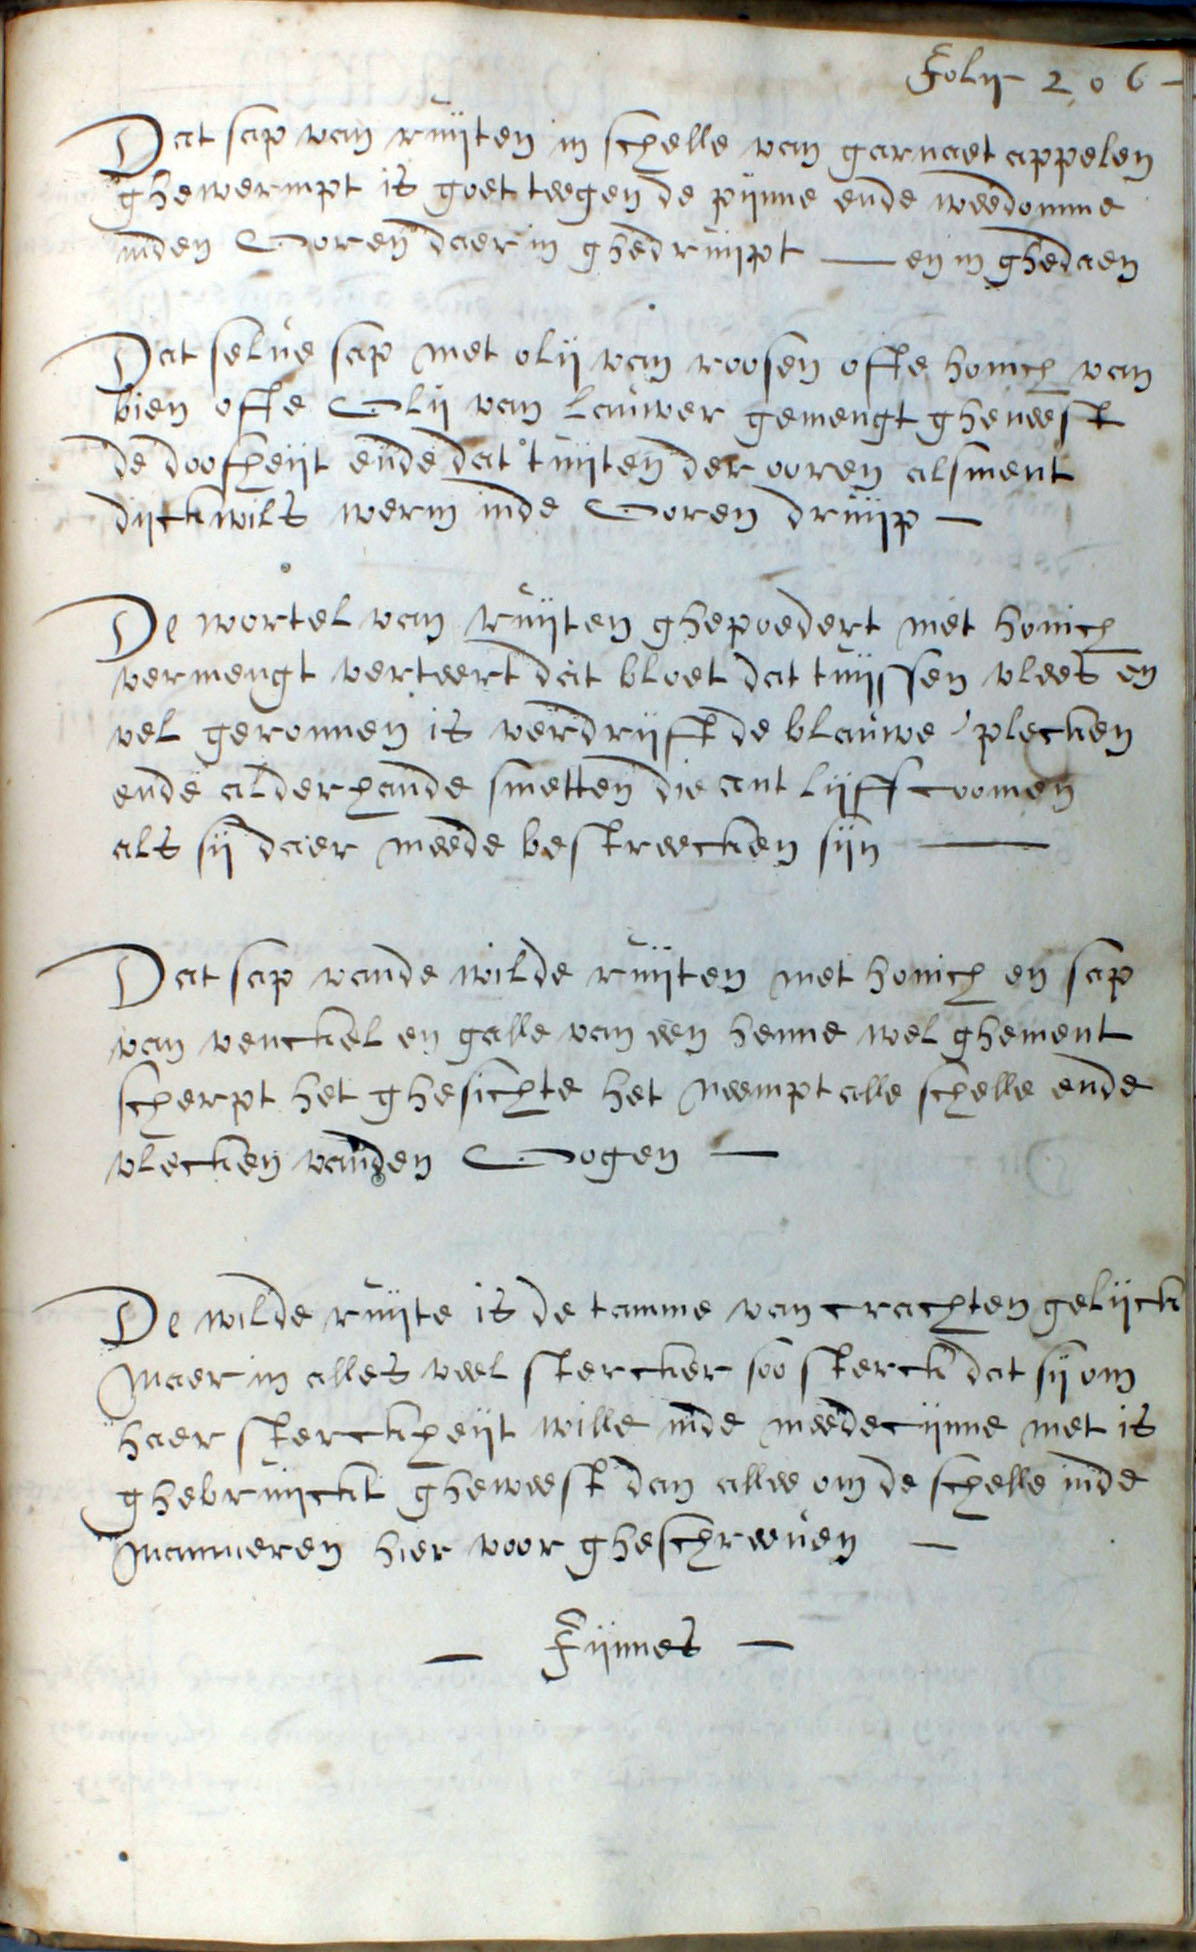 Folij 206
Dat sap van ruijten in schelle van garnaet appelen
ghewermpt is goet teegen de pijnne ende weedomme
inden Ooren daer in ghedruijpt — en in ghedaen
Dat selue sap met olij van roosen ofte honich van
bien ofte Olij van lauwer gemengt gheneest
de doofheijt ende dat tuijten der ooren alsment
dijckwils werm inde Ooren druijp —
De wortel van ruijten ghepoedert met honich
vermengt verteert dat bloet dat tuijssen vlees en
vel geronnen is verdrijft de blauwe plecken
ende alderhande smetten die ant lijff coomen
als sij daer meede bestreecken sijn —
Dat sap vande wilde ruijten met honich en sap
van venckel en galle van een henne wel ghement
scherpt het ghesichte het neempt alle schelle ende
vlecken vanden Oogen —
De wilde ruijte is de tamme van crachten gelijck
Maer in alles veel stercker soo sterck dat sij om
haer sterckheijt wille inde meedecijnne niet is
ghebruijckt gheweest dan allee om de schelle inde
Mannieren hier voor gheschreeuen —
— Fijnnes —